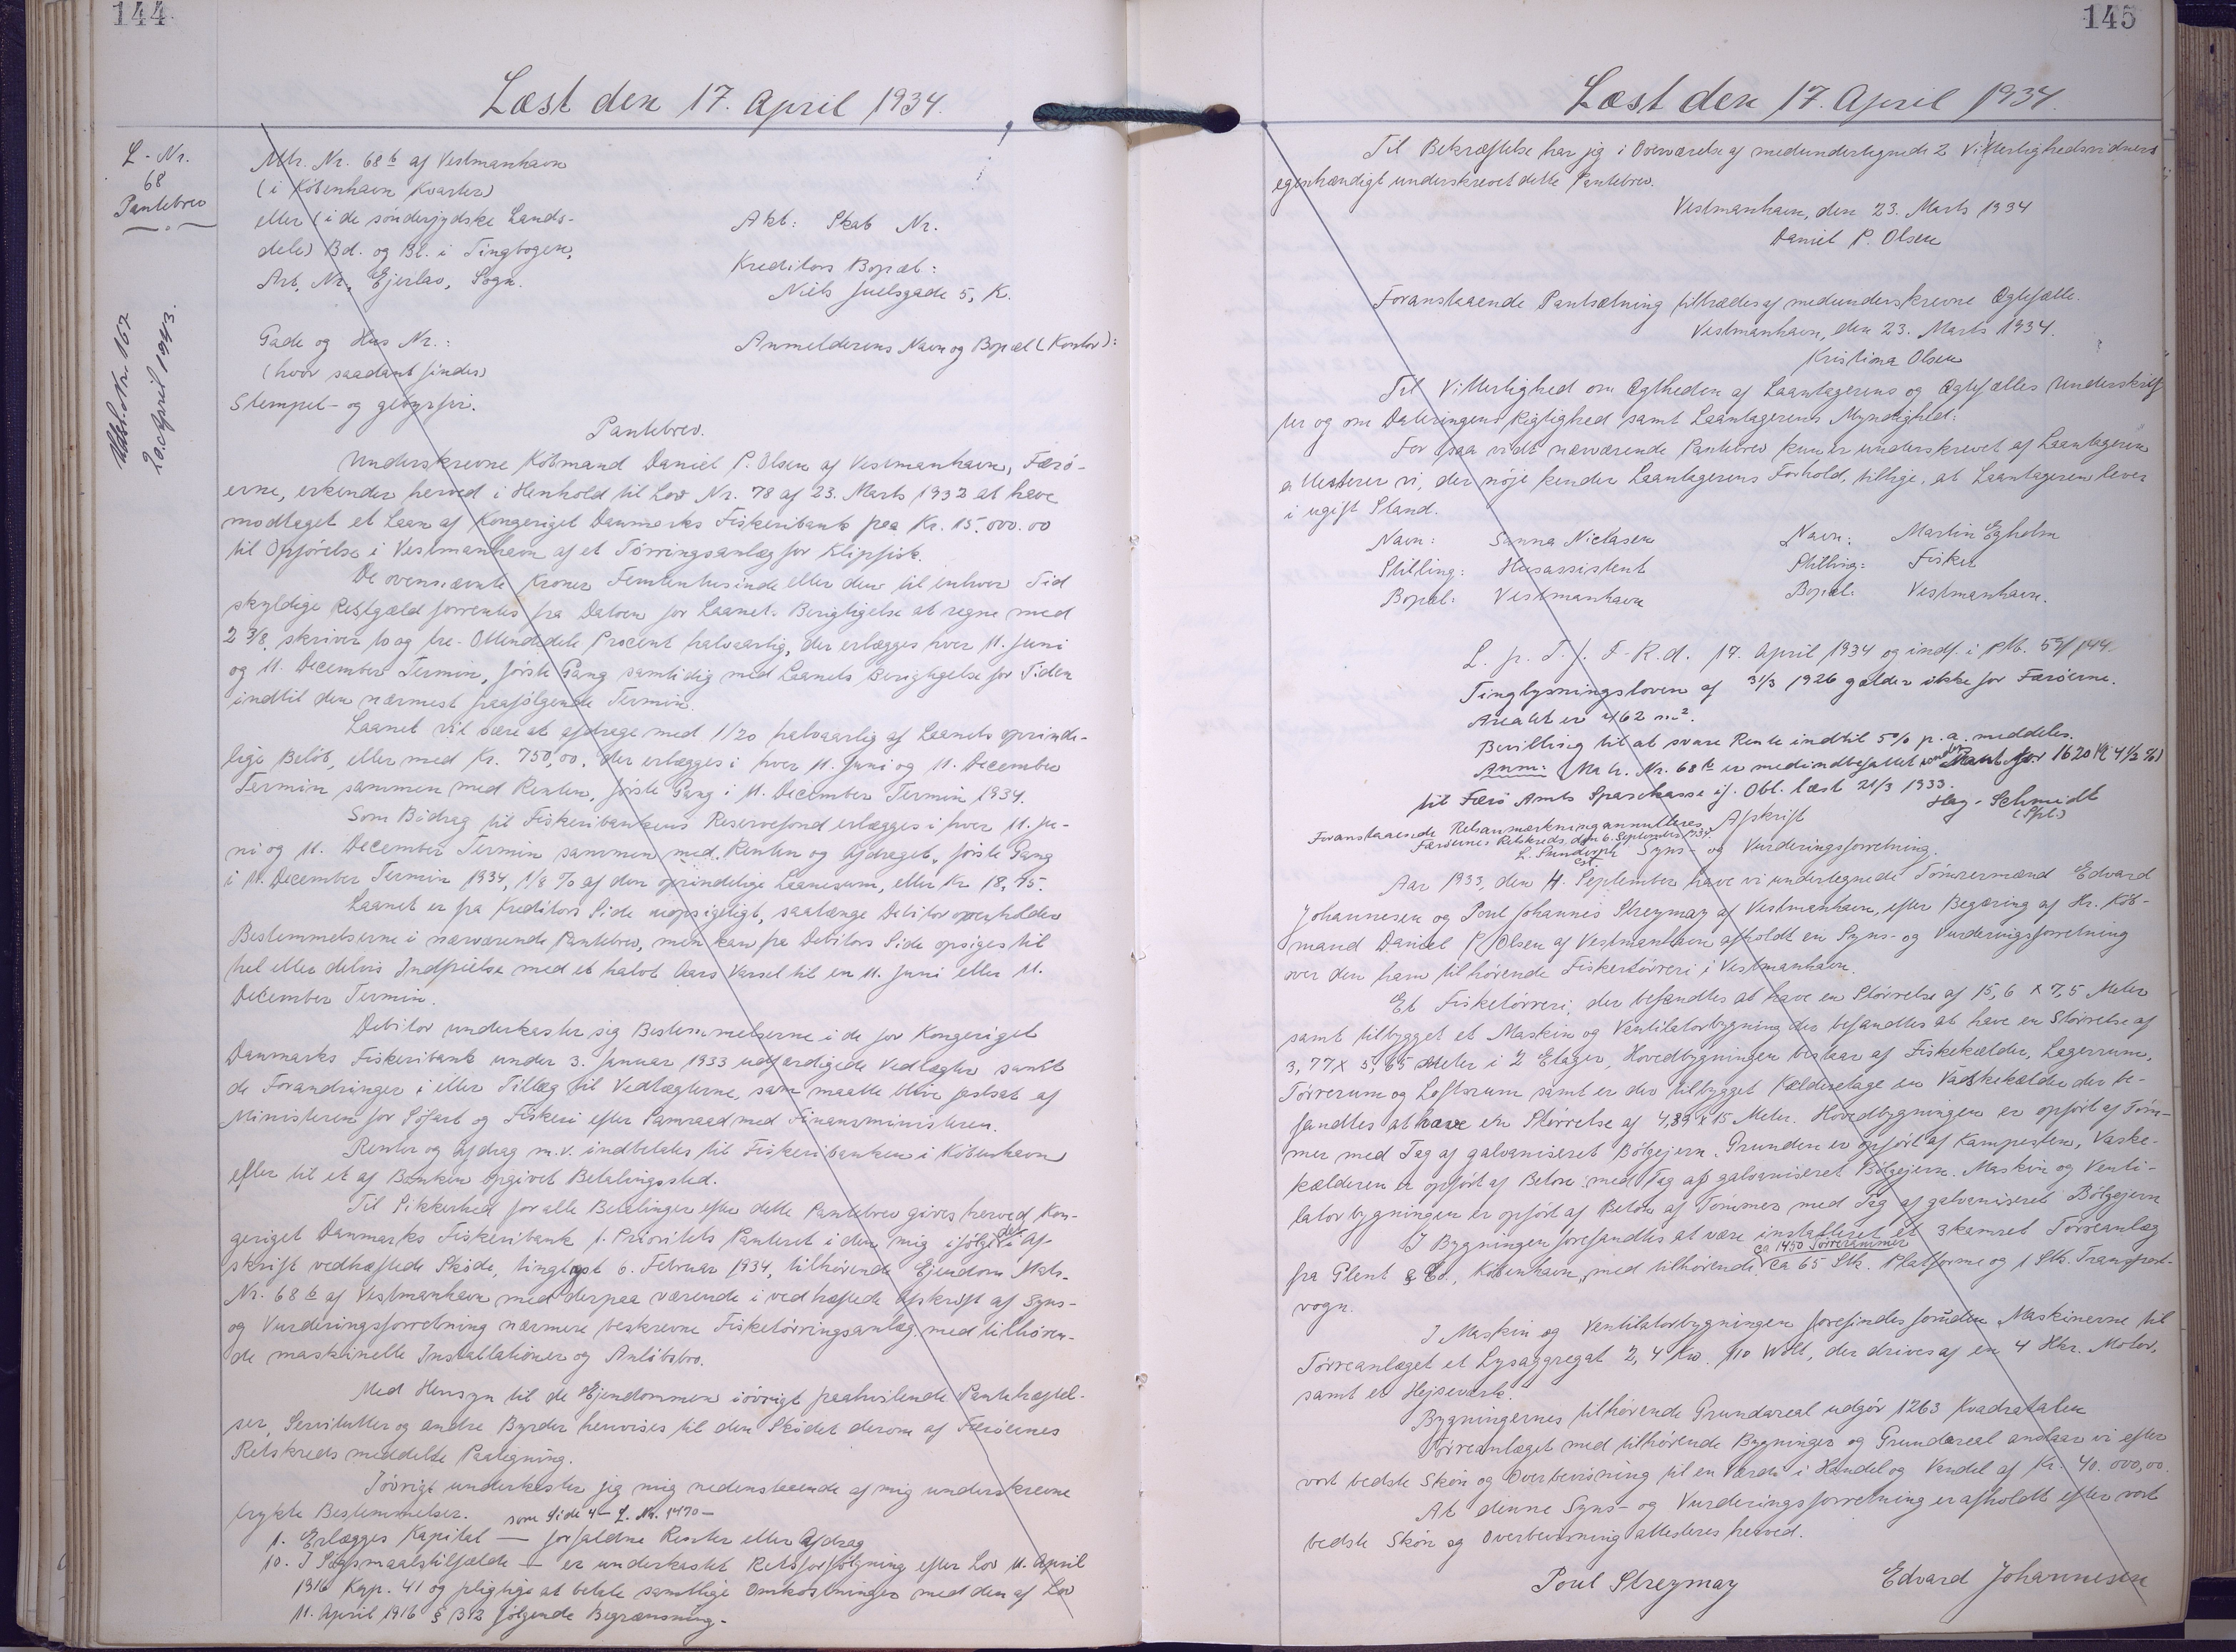 144
Læst den 17. April 1934.
L-Nr.
68
Pantebrev
Udsl. Nr. 167
20. April 1943.
Mtr. Nr. 68 b af Vestmanhavn
(i København Kvarter)
eller (i de sønderjydske Lands-
dele) Bd. og Bl. i Tingbogen,
Art. Nr., Ejerlav, Sogn.
Akt: Skab Nr.
Kreditors Bopæl:
Niels Juelsgade 5, K.
Gade og Hus Nr.:
(hvor saadant findes)
Anmelderens Navn og Bopæl (Kontor):
Stempel- og gebyrfri.
Pantebrev.
Underskrevne Købmand Daniel P. Olsen af Vestmanhavn, Færø-
erne, erkender herved i Henhold til Lov Nr. 78 af 23. Marts 1932 at have
modtaget et Laan af Kongeriget Danmarks Fiskeribank paa Kr. 15.000.00
til Opførelse i Vestmanhavn af et Tørringsanlæg for Klipfisk.
De ovennævnte Kroner Femtentusinde eller den til enhver Tid
skyldige Restgæld forrentes fra Datoen for Laanet. Berigtigelse at regne med
2 3/8, skriver to og tre-Ottendedele Procent halvaarlig, der erlægges hver 11. Juni
og 11. December Termin, første Gang samtidig med Laanets Berigtigelse for Tiden
indtil den nærmest paafølgende Termin.
Laanet vil være at afdrage med 1/20 halvaarlig af Laanets oprinde-
lige Beløb, eller med Kr. 750,00, der erlægges i hver 11. Juni og 11. December
Termin sammen med Renten, første Gang i 11. December Termin 1934.
Som Bidrag til Fiskeribankens Reservefond erlægges i hver 11. Ju-
ni og 11. December Termin sammen med Renten og Afdraget, første Gang
i 11. December Termin 1934, 1/8 % af den oprindelige Laanesum, eller Kr 18,75.
Laanet er fra Kreditors Side uopsigeligt, saalænge Debitor overholder
Bestemmelserne i nærværende Pantebrev, men kan fra Debitors Side opsiges til
hel eller delvis Indfrielse med et halvt Aars Varsel til en 11. Juni eller 11.
December Termin.
Debitor underkaster sig Bestemmelserne i de for Kongeriget
Danmarks Fiskeribank under 3. Januar 1933 udfærdigede Vedtægter samt
de Forandringer i eller Tillæg til Vedtægterne, som maatte blive fastsat af
Ministeren for Søfart og Fiskeri efter Samraad med Finansministeren.
Renter og Afdrag m.v. indbetales til Fiskeribanken i København
eller til et af Banken opgivet Betalingssted.
Til Sikkerhed for alle Betalinger efter dette Pantebrev gives herved Kon-
geriget Danmarks Fiskeribank 1. Prioritets Panteret i den mig ifølge det i Af-
skrift vedhæftede Skøde, tinglyst 6. Februar 1934, tilhørende Ejendom Matr.
Nr. 68 b af Vestmanhavn med derpaa værende i vedhæftede Afskrift af Syns-
og Vurderingsforretning nærmere beskrevne Fisketørringsanlæg med tilhøren-
de maskinelle Installationer og Anløbsbro.
Med Hensyn til de Ejendommen iøvrigt paahvilende Pantehæftel-
ser, Servitutter og andre Byrder henvises til den Skødet derom af Færøernes
Retskreds meddelte Paategning.
Iøvrigt underkaster jeg mig nedenstaaende af mig underskrevne
trykte Bestemmelser. som Side 4 - L. Nr. 1470 -
1. Erlægges Kapital — forfaldne Renter eller Afdrag
10. I Søgsmaalstilfælde — er underkastet Retsforfølgning efter Lov 11. April
1916 Kap. 41 og pligtig at betale samtlige Omkostninger med den af Lov
11. April 1916 § 312 følgende Begrænsning.
145
Læst den 17. April 1934.
Til Bekræftelse har jeg i Overværelse af medundertegnede 2 Vitterlighedsvidner
egenhændigt underskrevet dette Pantebrev.
Vestmanhavn, den 23. Marts 1934
Daniel P. Olsen
Foranstaaende Pantsætning tiltrædes af medunderskrevne Ægtefælle.
Vestmanhavn, den 23. Marts 1934.
Kristiona Olsen
Til Vitterlighed om Ægtheden af Laantagerens og Ægtefælles Underskrif
ter og om Dateringens Rigtighed samt Laantagerens Myndighed:
For saa vidt nærværende Pantebrev kun er underskrevet af Laantageren
attesterer vi, der nøje kender Laantagerens Forhold, tillige, at Laantageren lever
i ugift Stand.
Navn: Sunna Niclasen Navn: Martin Egholm
Stilling: Husassistent Stilling: Fisker
Bopæl: Vestmanhavn Bopæl: Vestmanhavn.
L. p. T. f. F.R.d. 17. April 1934 og indf. i PM. 59/144
Tinglysningsloven af 31/3 1926 gælder ikke for Færøerne.
Arealet er 462 m².
Bevilling til at svare Rente indtil 5% p.a. meddeles.
Anm: Matr. Nr. 68 b er medindbefattet under Pant for 1620 Kr 4 1/2 %)
til Færø Amts Sparekasse if. Obl. læst 21/3 1933.
Hey-Schmidt
(Spt.)
Foranstaaende Retsanmærkning annulleres
Færøernes Retskreds, den 6. September 1934.
L. Sundorph
cst.
Afskrift
Syns- og Vurderingsforretning.
Aar 1933, den 4. September have vi undertegnede Tømrermænd Edvard
Johannesen og Poul Johannis Streymoy af Vestmanhavn, efter Begæring af Hr. Køb-
mand Daniel P. Olsen af Vestmanhavn afholdt en Syns- og Vurderingsforretning
over den ham tilhørende Fisketørreri i Vestmanhavn.
Et Fisketørreri, der befandtes at have en Størrelse af 15,6 x 7,5 Meter
samt tilbygget et Maskin og Ventilatorbygning der befandtes at have en Størrelse af
3,77 x 5,65 Meter i 2 Etager, Hovedbygningen bestaar af Fiskekælder, Lagerrum,
Tørrerum og Loftsrum samt er der tilbygget Kælderetage en Vaskekælder der be-
fandtes at have en Størrelse af 4,89 x 15 Meter. Hovedbygningen er opført af Tøm-
mer med Tag af galvaniseret Bølgejern. Grunden er opført af Kampesten, Vaske-
kælderen er opført af Beton med Tag af galvaniseret Bølgejern. Maskin og Venti-
latorbygningen er opført af Beton af Tømmer med Tag af galvaniseret Bølgejern
I Bygningen forefandtes at være installeret et 3kamret Tørreanlæg
fra Glent & Co., København, med tilhørende ca 1450 Tørrerammer ca 65 Stk. Platforme og 1 Stk. Transport-
vogn.
I Maskin og Ventilatorbygningen forefindes foruden Maskinerne til
Tørreanlæget et Lysaggregat 2,4 Kw. 110 Wolt, der drives af en 4 Hkr. Motor,
samt et Hejseværk.
Bygningernes tilhørende Grundareal udgør 1263 Kvadratalen
Tørreanlæget med tilhørende Bygninger og Grundareal anslaar vi efter
vort bedste Skøn og Overbevisning til en Værdi i Handel og Vandel af Kr. 40.000,00.
At denne Syns- og Vurderingsforretning er afholdt efter vort
bedste Skøn og Overbevisning attesteres herved.
Poul Streymoy Edvard Johannesen